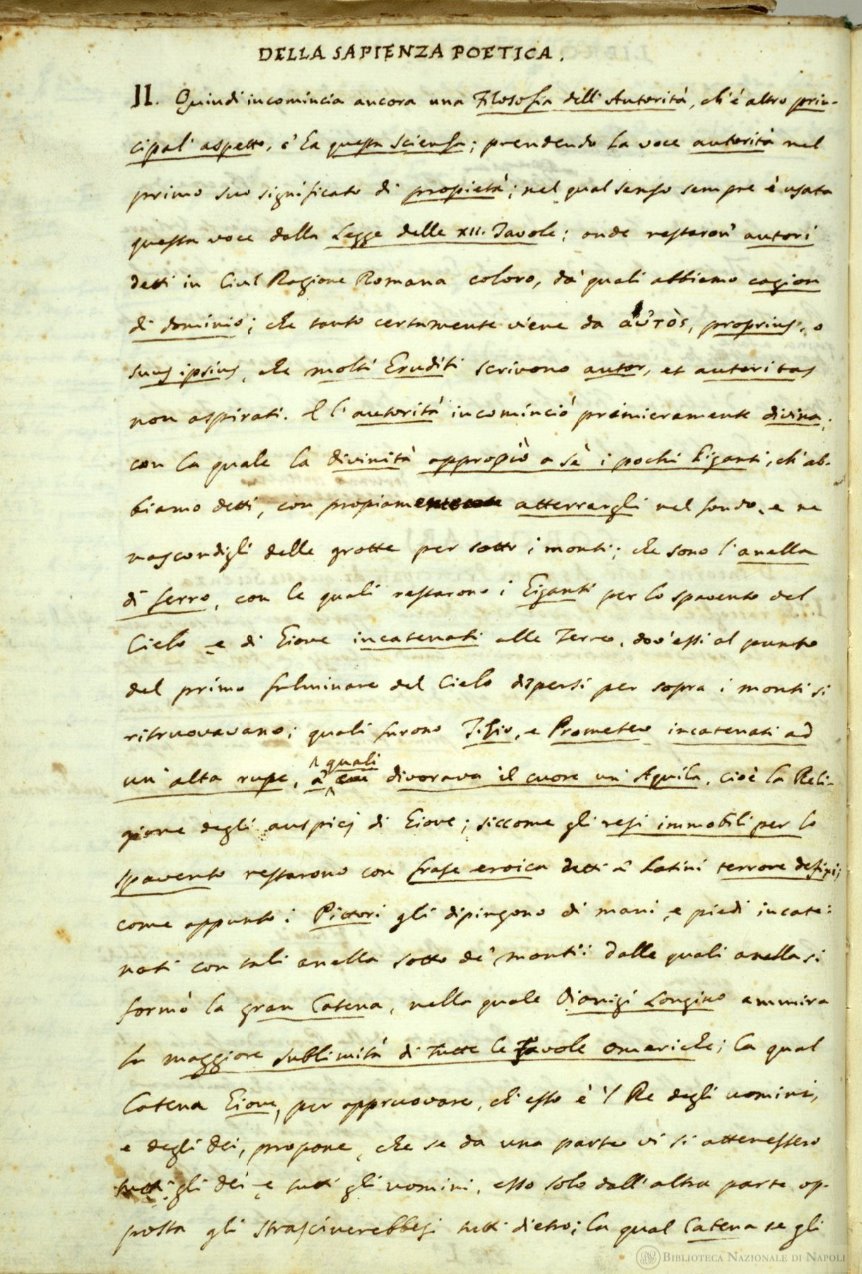 DELLA SAPIENZA POETICA.
II. Quindi incomincia ancora una Filosofia dell'Autorità, ch'è altro prin-
cipal' aspetto, c'ha questa Scienza; prendendo la voce autorità nel
primo suo significato di propietà; nel qual senso sempre è usata
questa voce dalla Legge delle XII. Tavole; onde restaron' autori
detti in Civil Ragione Romana coloro, da' quali abbiamo cagion
di dominio; che tanto certamente viene da αὐτὸς, proprius, o
suus ipsius, che molti Eruditi scrivono autor, et autoritas
non aspirati. E l'autorità incominciò primieramente divina;
con la quale la divinità appropiò a sè i pochi Giganti, ch'ab-
biamo detti, con propiamente atterrargli nel fondo, e ne
nascondigli delle grotte per sotto i monti; che sono l'anella
di ferro, con le quali restarono i Giganti per lo spavento del
Cielo e di Giove incatenati alle Terre, dov'essi al punto
del primo fulminare del Cielo dispersi per sopra i monti si
ritruovavano; quali furono Tizio, e Prometeo incatenati ad
un'alta rupe, a' quali divorava il cuore un'Aquila, cioè la Reli-
gione degli auspicj di Giove; siccome gli resi immobili per lo
spavento restarono con frase eroica detti a' Latini terrore defixi;
come appunto i Pittori gli dipingono di mani, e piedi incate-
nati con tali anella sotto de' monti: dalle quali anella si
formò la gran Catena, nella quale Dionigi Longino ammira
la maggiore sublimità di tutte le Favole omeriche; la qual
Catena Giove, per appruovare, ch'esso è 'l Re degli uomini,
e degli dei, propone, che se da una parte vi si attenessero
tutti gli dei e tutti gli uomini, esso solo dall'altra parte op-
posta gli strascinerebbesi tutti dietro; la qual Catena se gli
BIBLIOTECA NAZIONALE DI NAPOLI